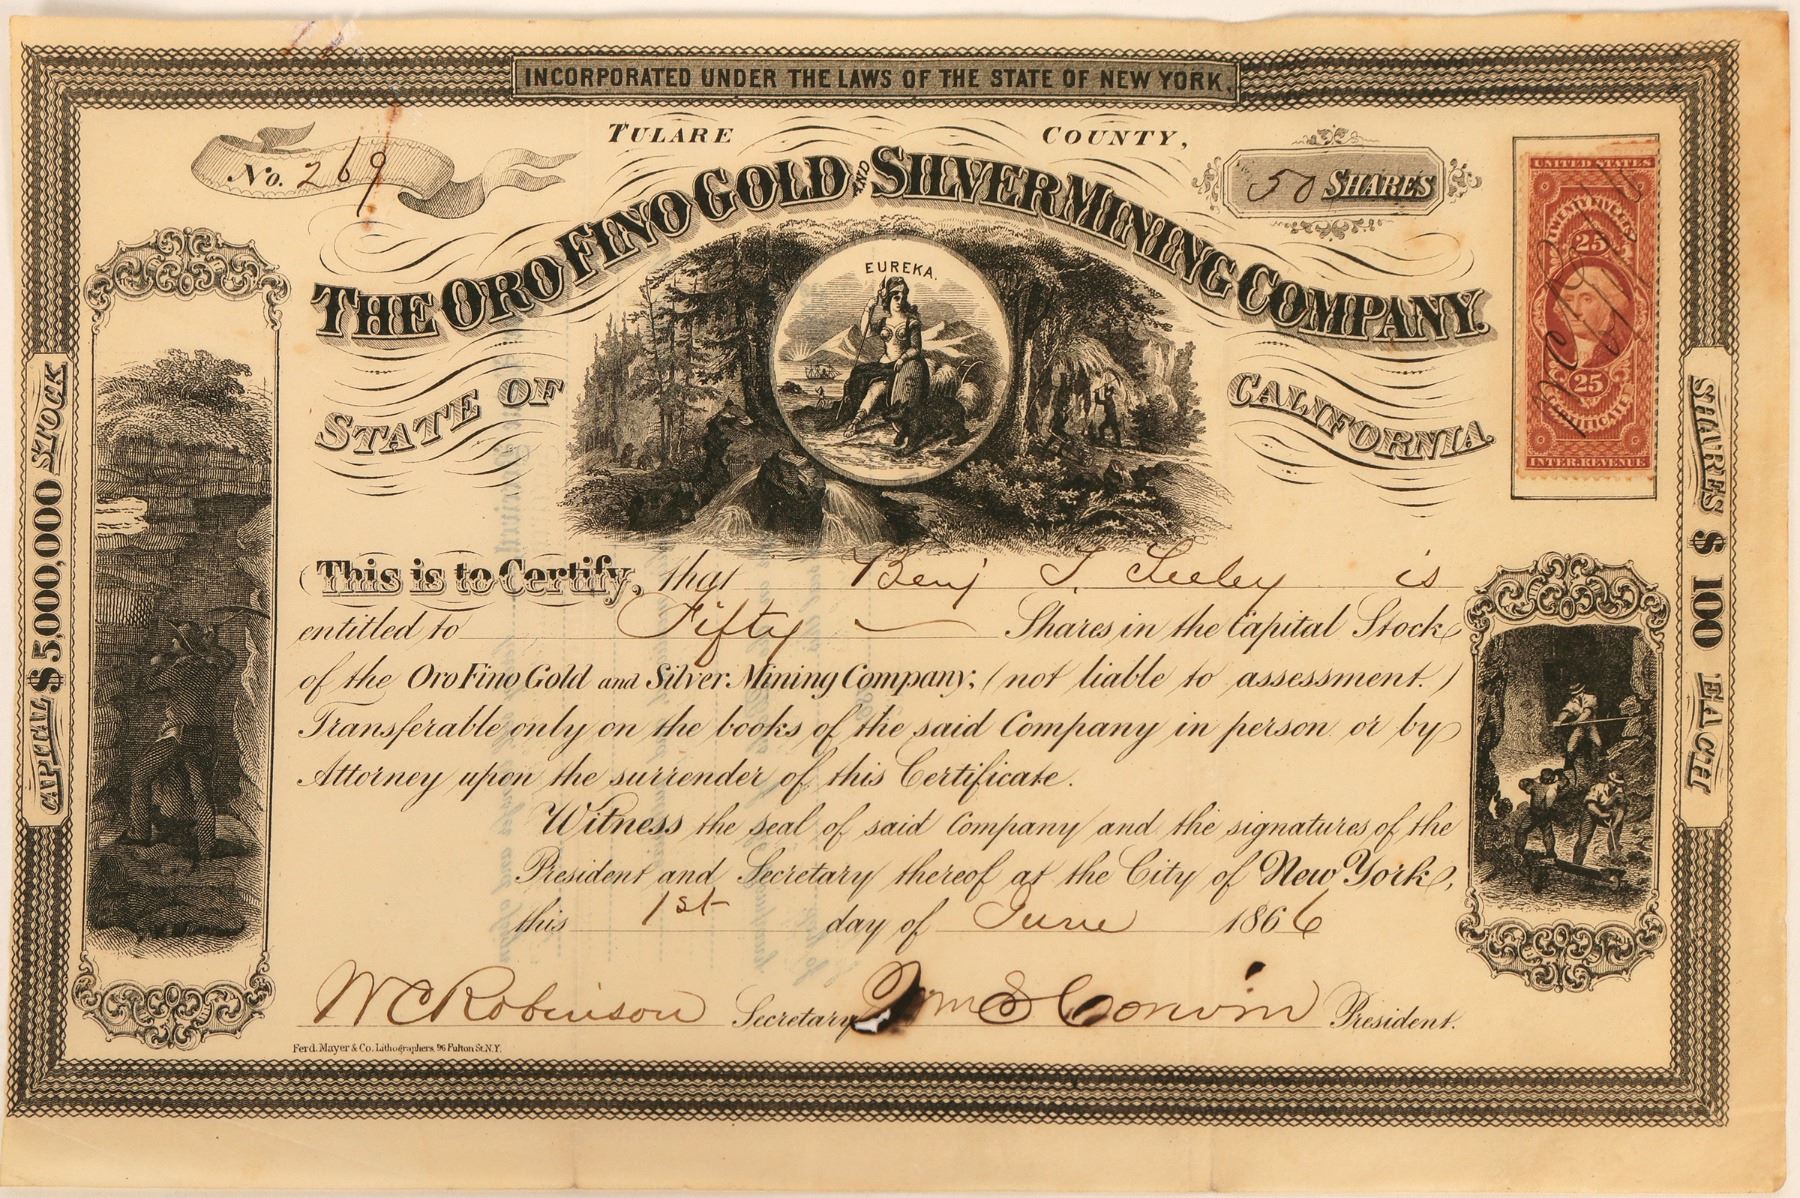 INCORPORATED UNDER THE LAWS OF THE STATE OF NEW YORK.
No. 269
TULARE COUNTY,
50 SHARES
THE ORO FINO GOLD AND SILVER MINING COMPANY.
STATE OF CALIFORNIA
EUREKA.
UNITED STATES
TWENTY FIVE CTS.
25
25
CERTIFICATE
INTER. REVENUE
CAPITAL $5,000,000 STOCK
SHARES $100 EACH
This is to Certify, that Benj T. Seeley is
entitled to Fifty Shares in the Capital Stock
of the Oro Fino Gold and Silver Mining Company; (not liable to assessment.)
Transferable only on the books of the said Company in person or by
Attorney upon the surrender of this Certificate.
Witness the seal of said Company and the signatures of the
President and Secretary thereof at the City of New York,
this 1st day of June 1866
W C Robinson Secretary Wm S Corwin President.
Ferd. Mayer & Co. Lithographers, 96 Fulton St. N.Y.